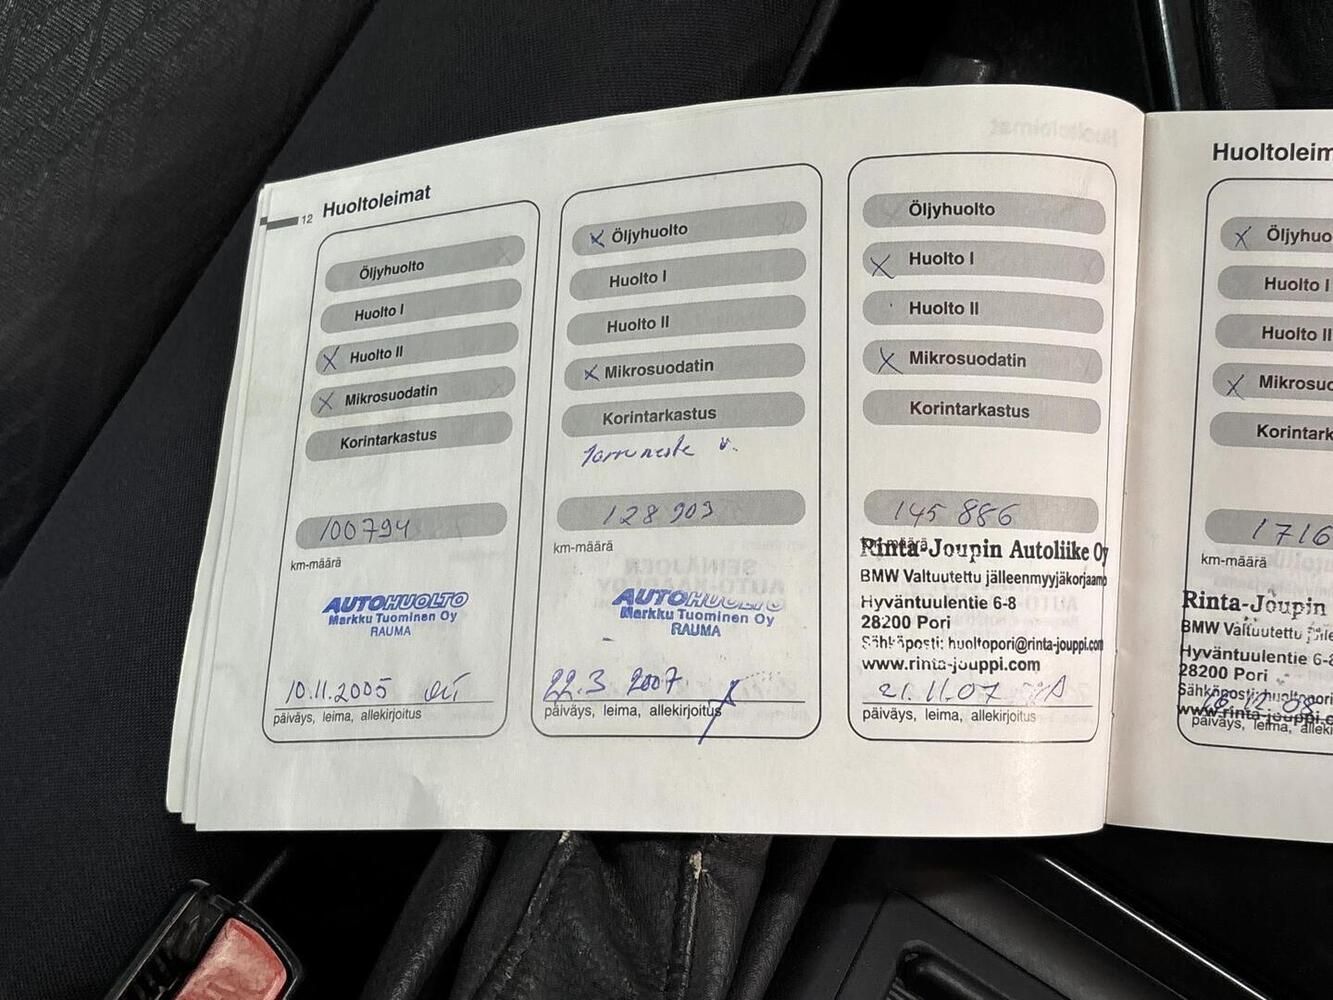 12 Huoltoleimat
Öljyhuolto
Huolto I
X Huolto II
X Mikrosuodatin
Korintarkastus
100794
km-määrä
AUTOHUOLTO
Markku Tuominen Oy
RAUMA
10.11.2005
päiväys, leima, allekirjoitus
X Öljyhuolto
Huolto I
Huolto II
X Mikrosuodatin
Korintarkastus
Jarruneste v.
128 903
km-määrä
AUTOHUOLTO
Markku Tuominen Oy
RAUMA
22.3 2007
päiväys, leima, allekirjoitus
Öljyhuolto
X Huolto I
Huolto II
X Mikrosuodatin
Korintarkastus
145 886
km-määrä
Rinta-Joupin Autoliike Oy
BMW Valtuutettu jälleenmyyjäkorjaamo
Hyväntuulentie 6-8
28200 Pori
Sähköposti: huoltopori@rinta-jouppi.com
www.rinta-jouppi.com
21.11.07
päiväys, leima, allekirjoitus
Huoltoleim
X Öljyhuo
Huolto I
Huolto II
X Mikrosuo
Korintark
1716
km-määrä
Rinta-Joupin
BMW Valtuutettu jälle
Hyväntuulentie 6-8
28200 Pori
Sähköposti: huoltopori
www.rinta-jouppi.c
päiväys, leima, alleki